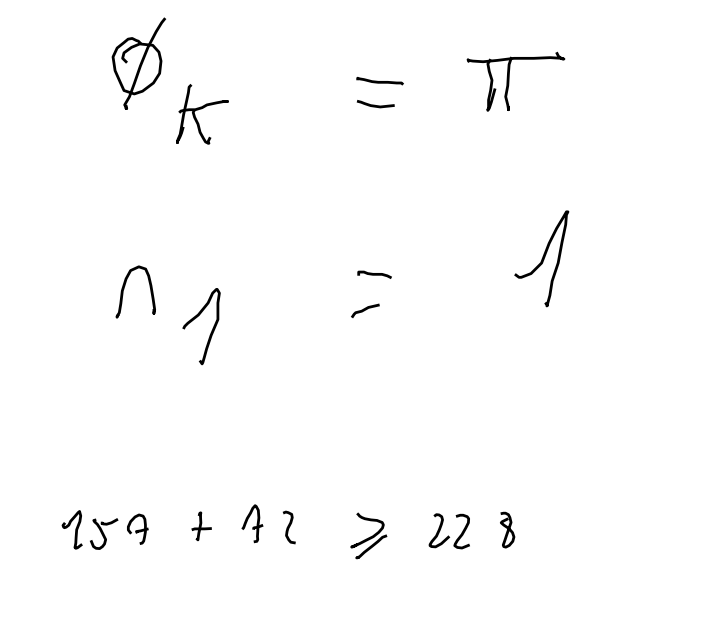 ∅_k = π
n_1 = 1
157 + 72 ≥ 228